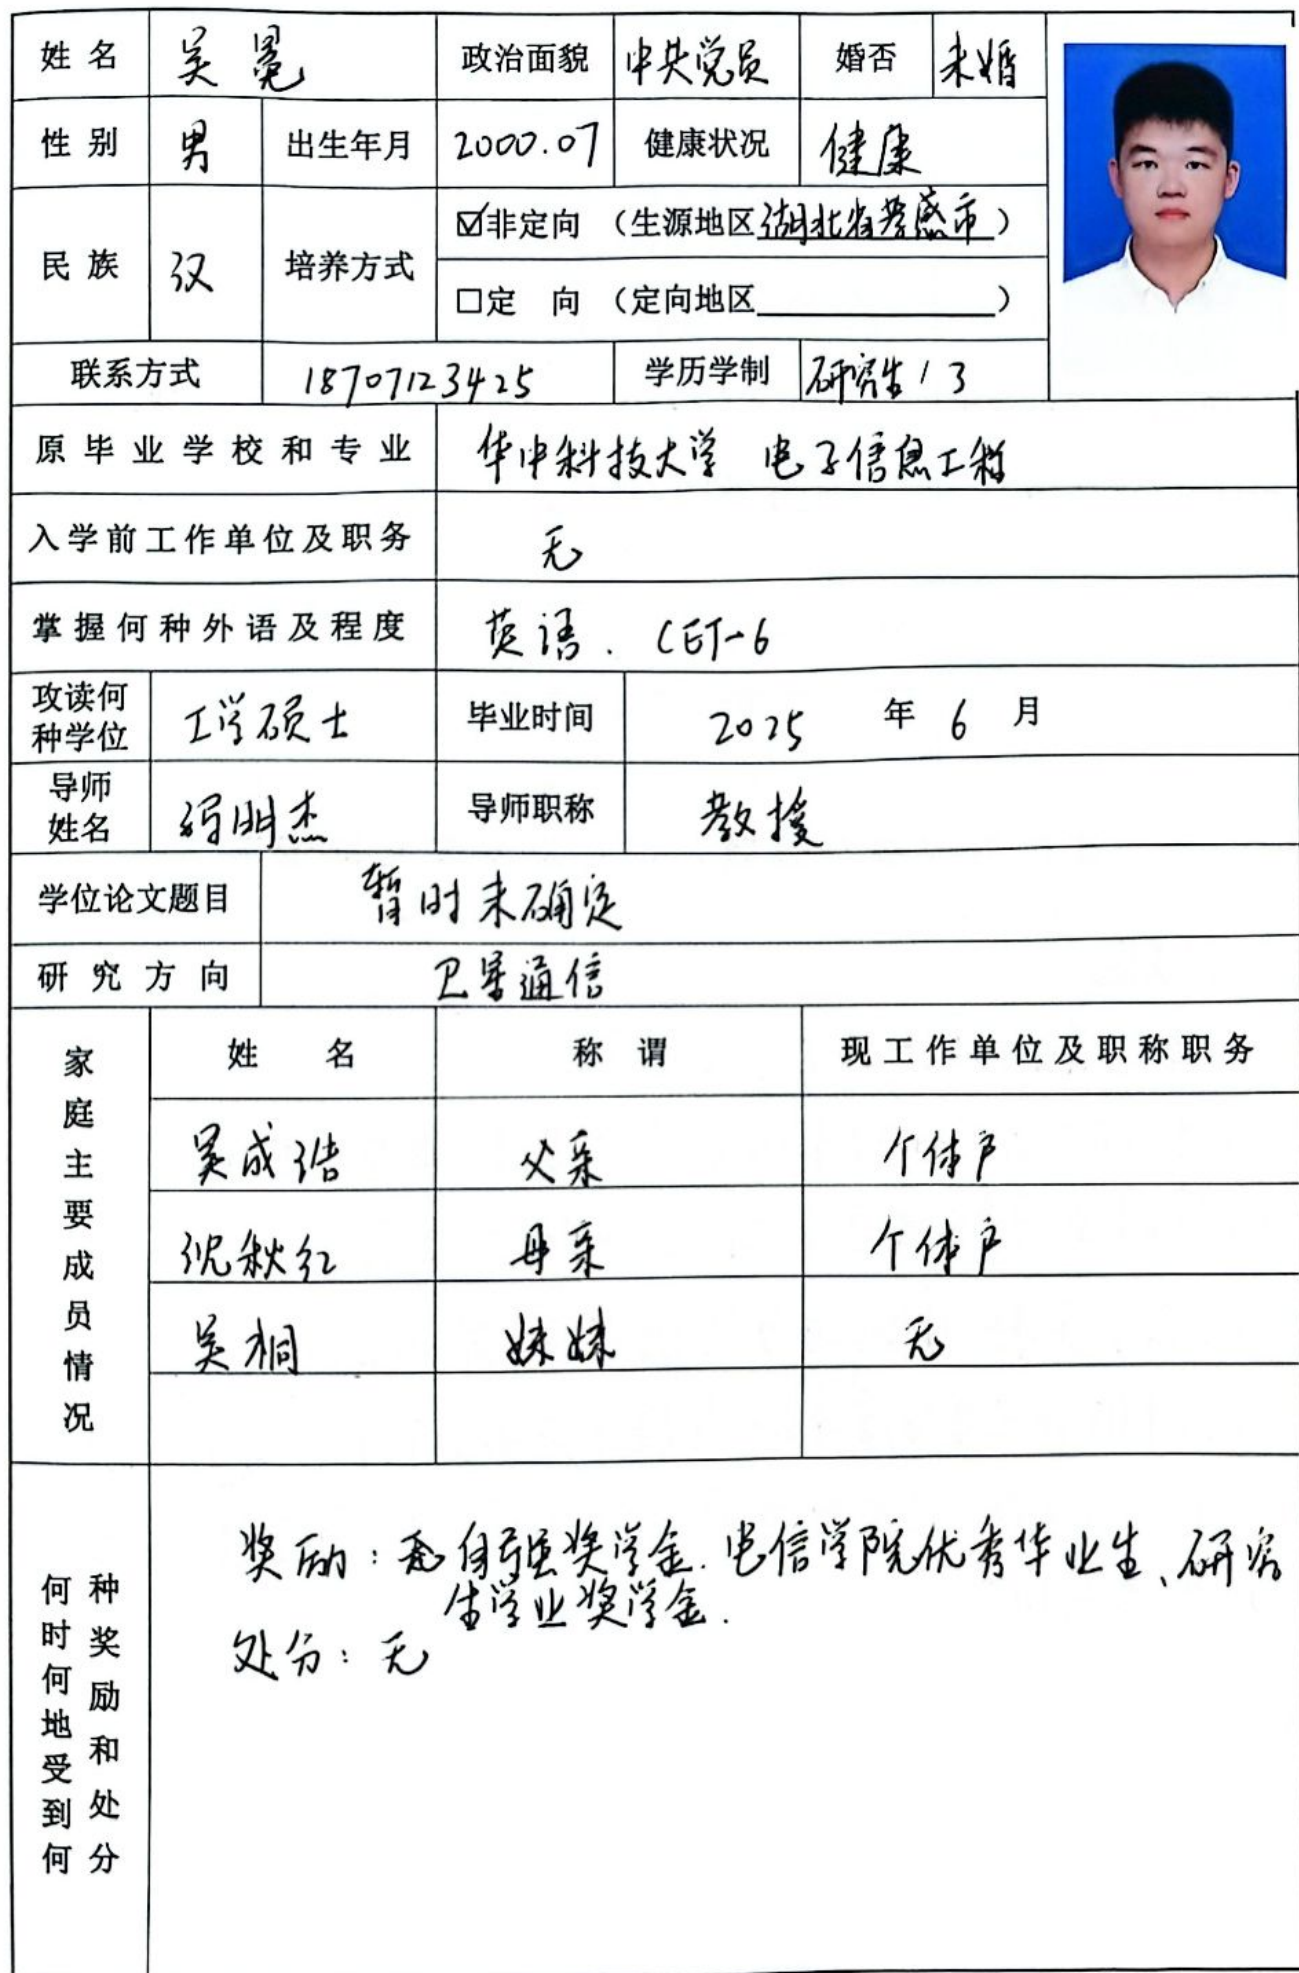 姓名 吴冕 政治面貌 中共党员 婚否 未婚
性别 男 出生年月 2000.07 健康状况 健康
民族 汉 培养方式 ☑非定向（生源地区湖北省孝感市）
□定 向（定向地区________）
联系方式 18707123425 学历学制 研究生/3
原毕业学校和专业 华中科技大学 电子信息工程
入学前工作单位及职务 无
掌握何种外语及程度 英语. CET-6
攻读何种学位 工学硕士 毕业时间 2025 年 6 月
导师姓名 明杰 导师职称 教授
学位论文题目 暂时未确定
研究方向 卫星通信
家庭主要成员情况
姓 名 称 谓 现工作单位及职称职务
吴成浩 父亲 个体户
沈秋红 母亲 个体户
吴桐 妹妹 无
何时何地受到何种奖励和处分
奖励：自强奖学金. 电信学院优秀毕业生、研究
生学业奖学金.
处分：无